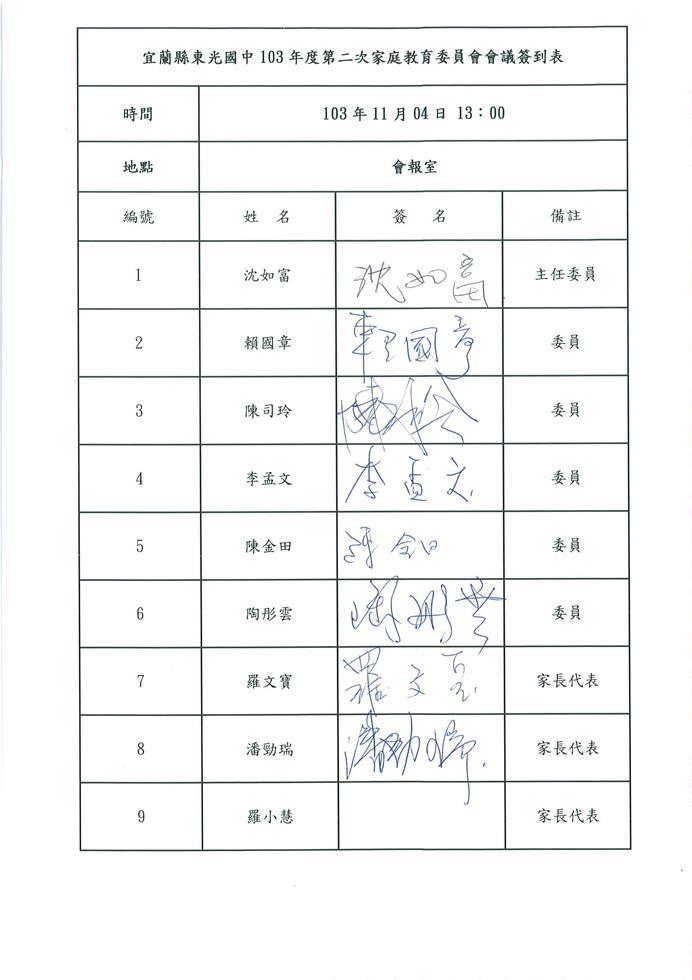 宜蘭縣東光國中 103 年度第二次家庭教育委員會會議簽到表
時間 103 年 11 月 04 日 13：00
地點 會報室
編號 姓 名 簽 名 備註
1 沈如富 沈如富 主任委員
2 賴國章 賴國章 委員
3 陳司玲 委員
4 李孟文 李孟文 委員
5 陳金田 委員
6 陶彤雲 委員
7 羅文寶 羅文 家長代表
8 潘勁瑞 家長代表
9 羅小慧 家長代表